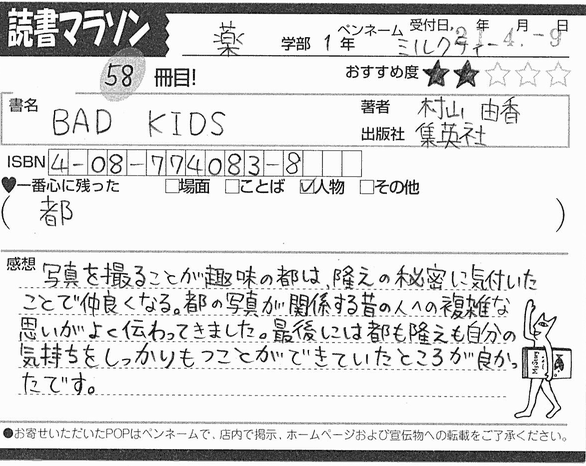 読書マラソン
薬 学部 1 年 ペンネーム ミルクティー 受付日 21年 4.月 -9日
58 冊目! おすすめ度 ★★☆☆☆
書名 BAD KIDS 著者 村山 由香
出版社 集英社
ISBN 4-08-774083-8
♥一番心に残った □場面 □ことば ☑人物 □その他
( 都 )
感想 写真を撮ることが趣味の都は、隆之の秘密に気付いた
ことで仲良くなる。都の写真が関係する昔の人への複雑な
思いがよく伝わってきました。最後には都も隆えも自分の
気持ちをしっかりもつことができていたところが良かっ
たです。
●お寄せいただいたPOPはペンネームで、店内で掲示、ホームページおよび宣伝物への転載をご了承ください。